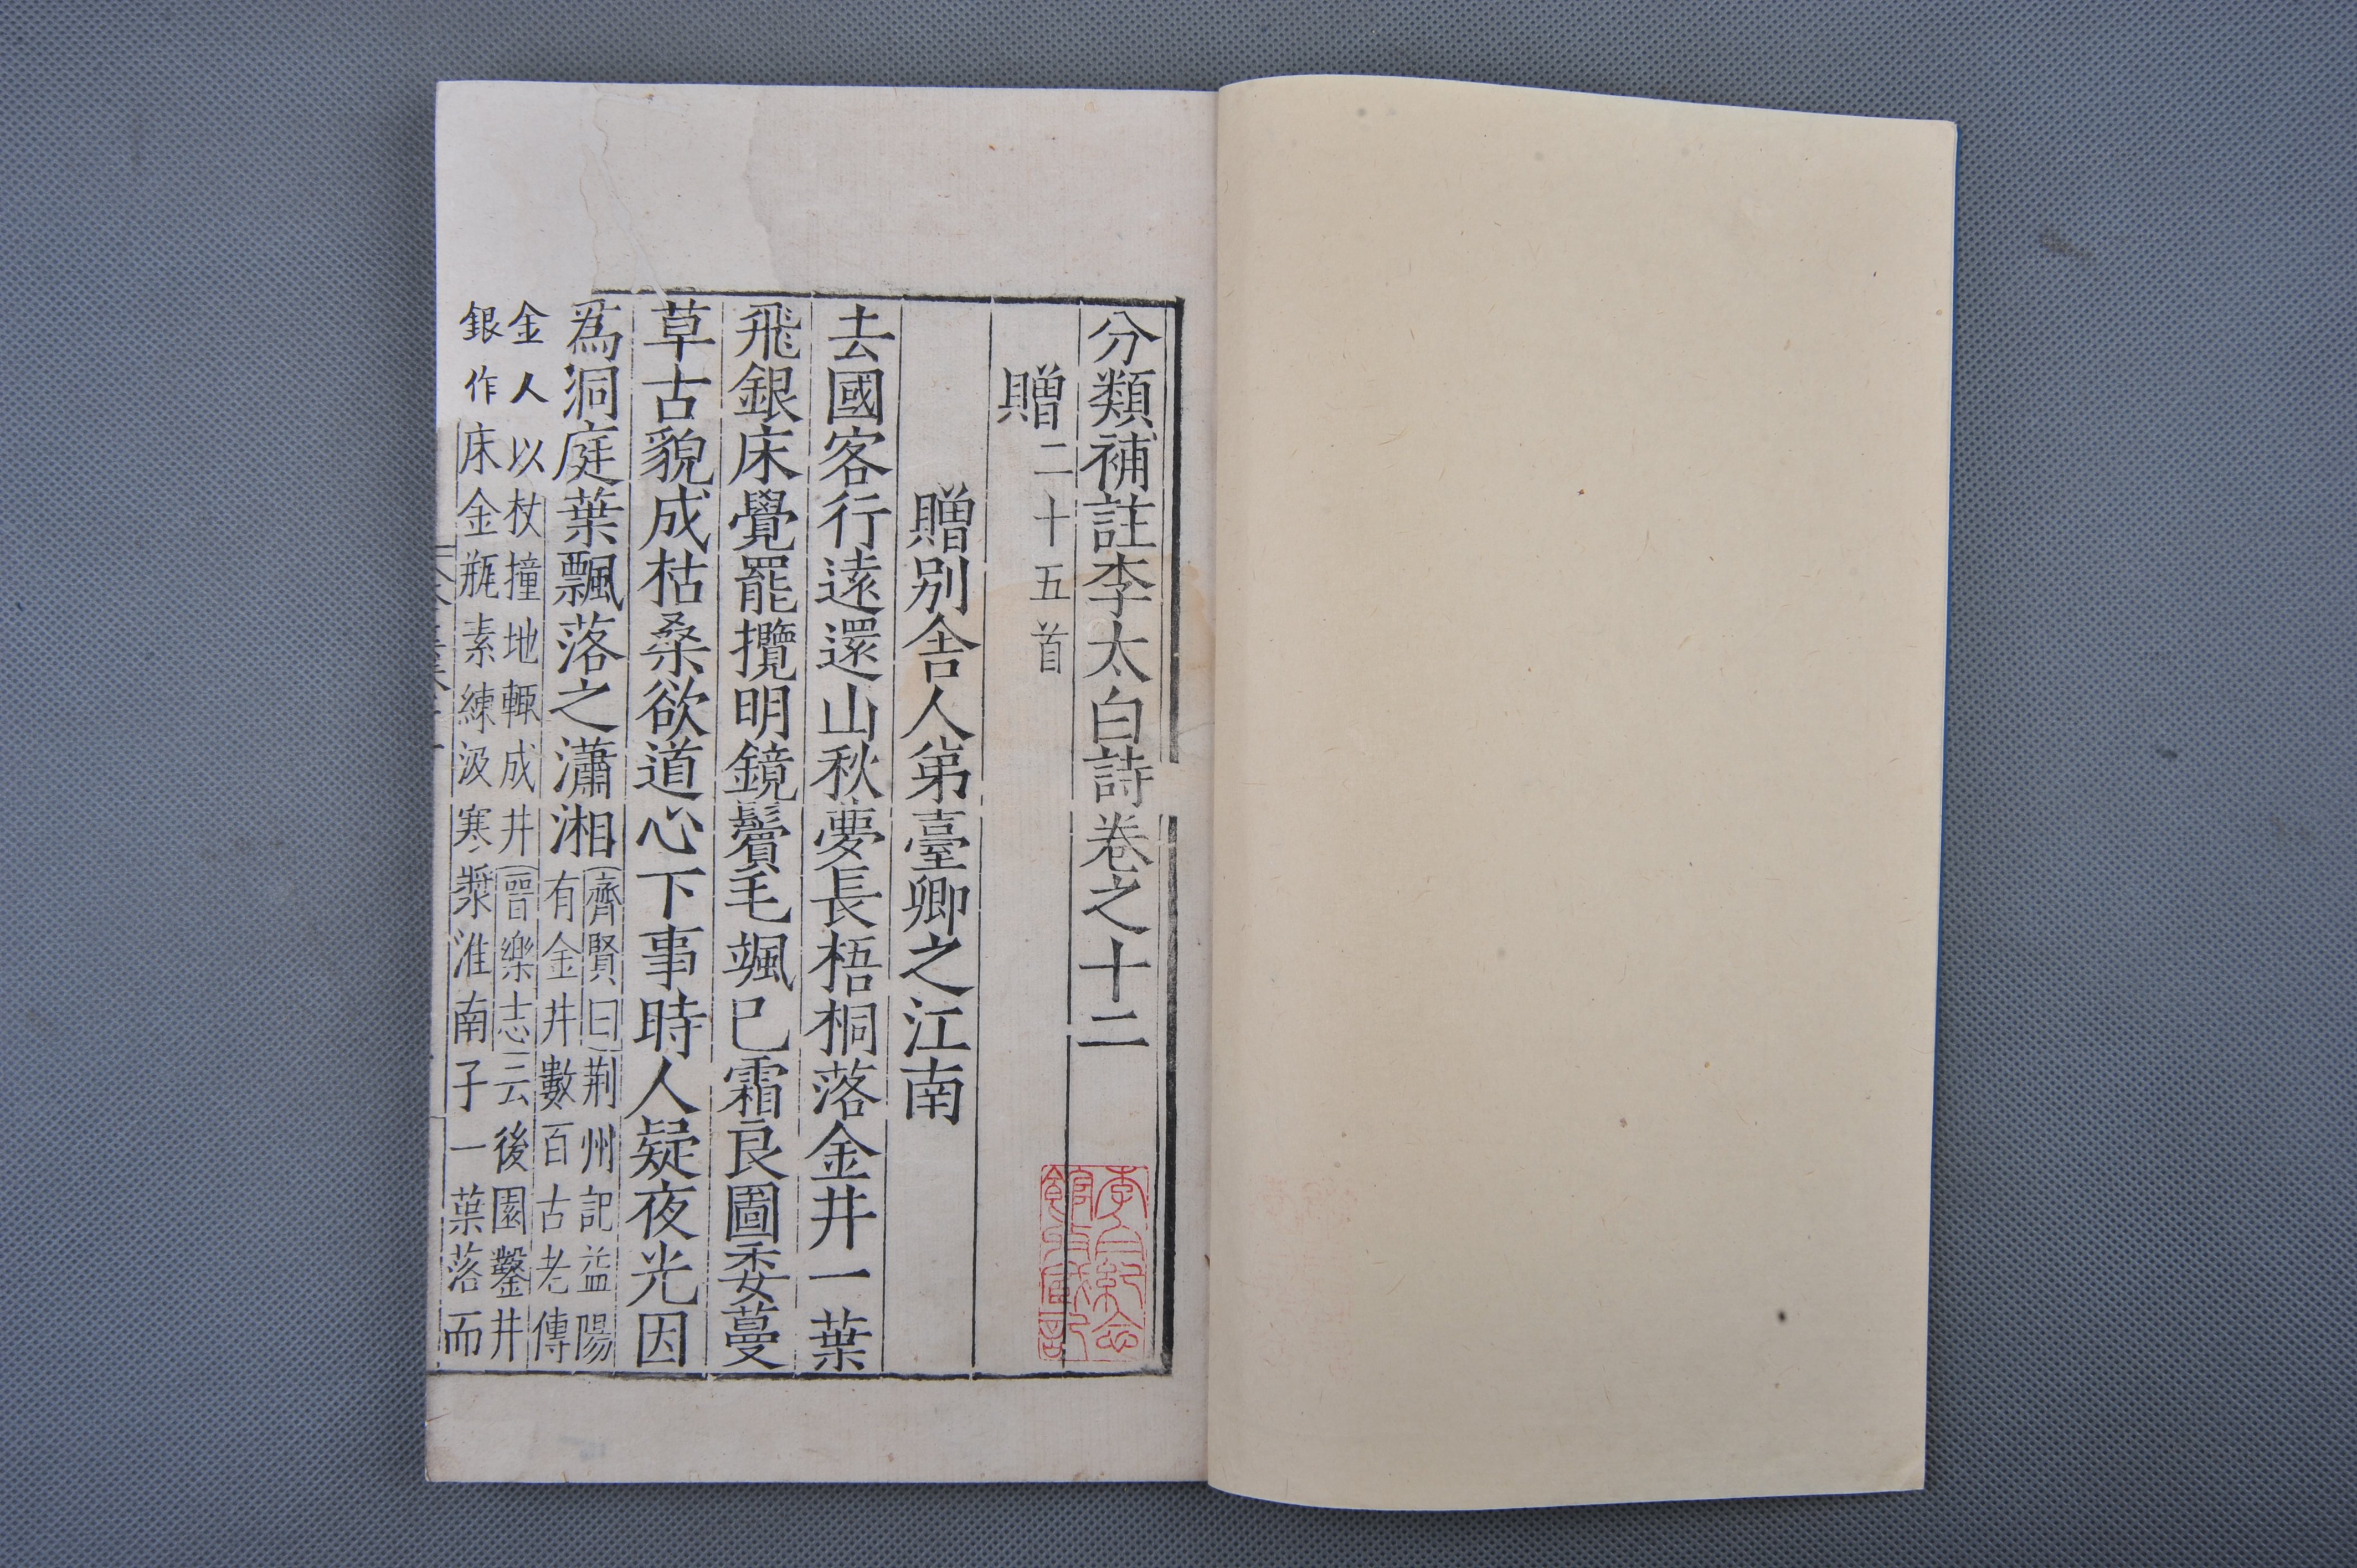 分類補註李太白詩卷之十二
贈二十五首
贈別舍人弟臺卿之江南
去國客行遠還山秋夢長梧桐落金井一葉
飛銀床覺罷攬明鏡鬢毛颯已霜良圖委蔓
草古貌成枯桑欲道心下事時人疑夜光因
爲洞庭葉飄落之瀟湘
齊賢曰荆州記益陽
有金井數百古老傳
金人以杖撞地輙成井晉樂志云後園鑿井
銀作床金瓶素練汲寒漿淮南子一葉落而
李白紀念
館收藏印